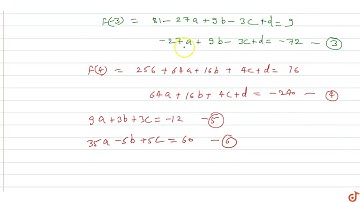 f(-3) = 81 - 27a + 9b - 3c + d = 9
-27a + 9b - 3c + d = -72 - ③
f(4) = 256 + 64a + 16b + 4c + d = 16
64a + 16b + 4c + d = -240 - ④
9a + 3b + 3c = -12 - ⑤
35a - 5b + 5c = 60 - ⑥